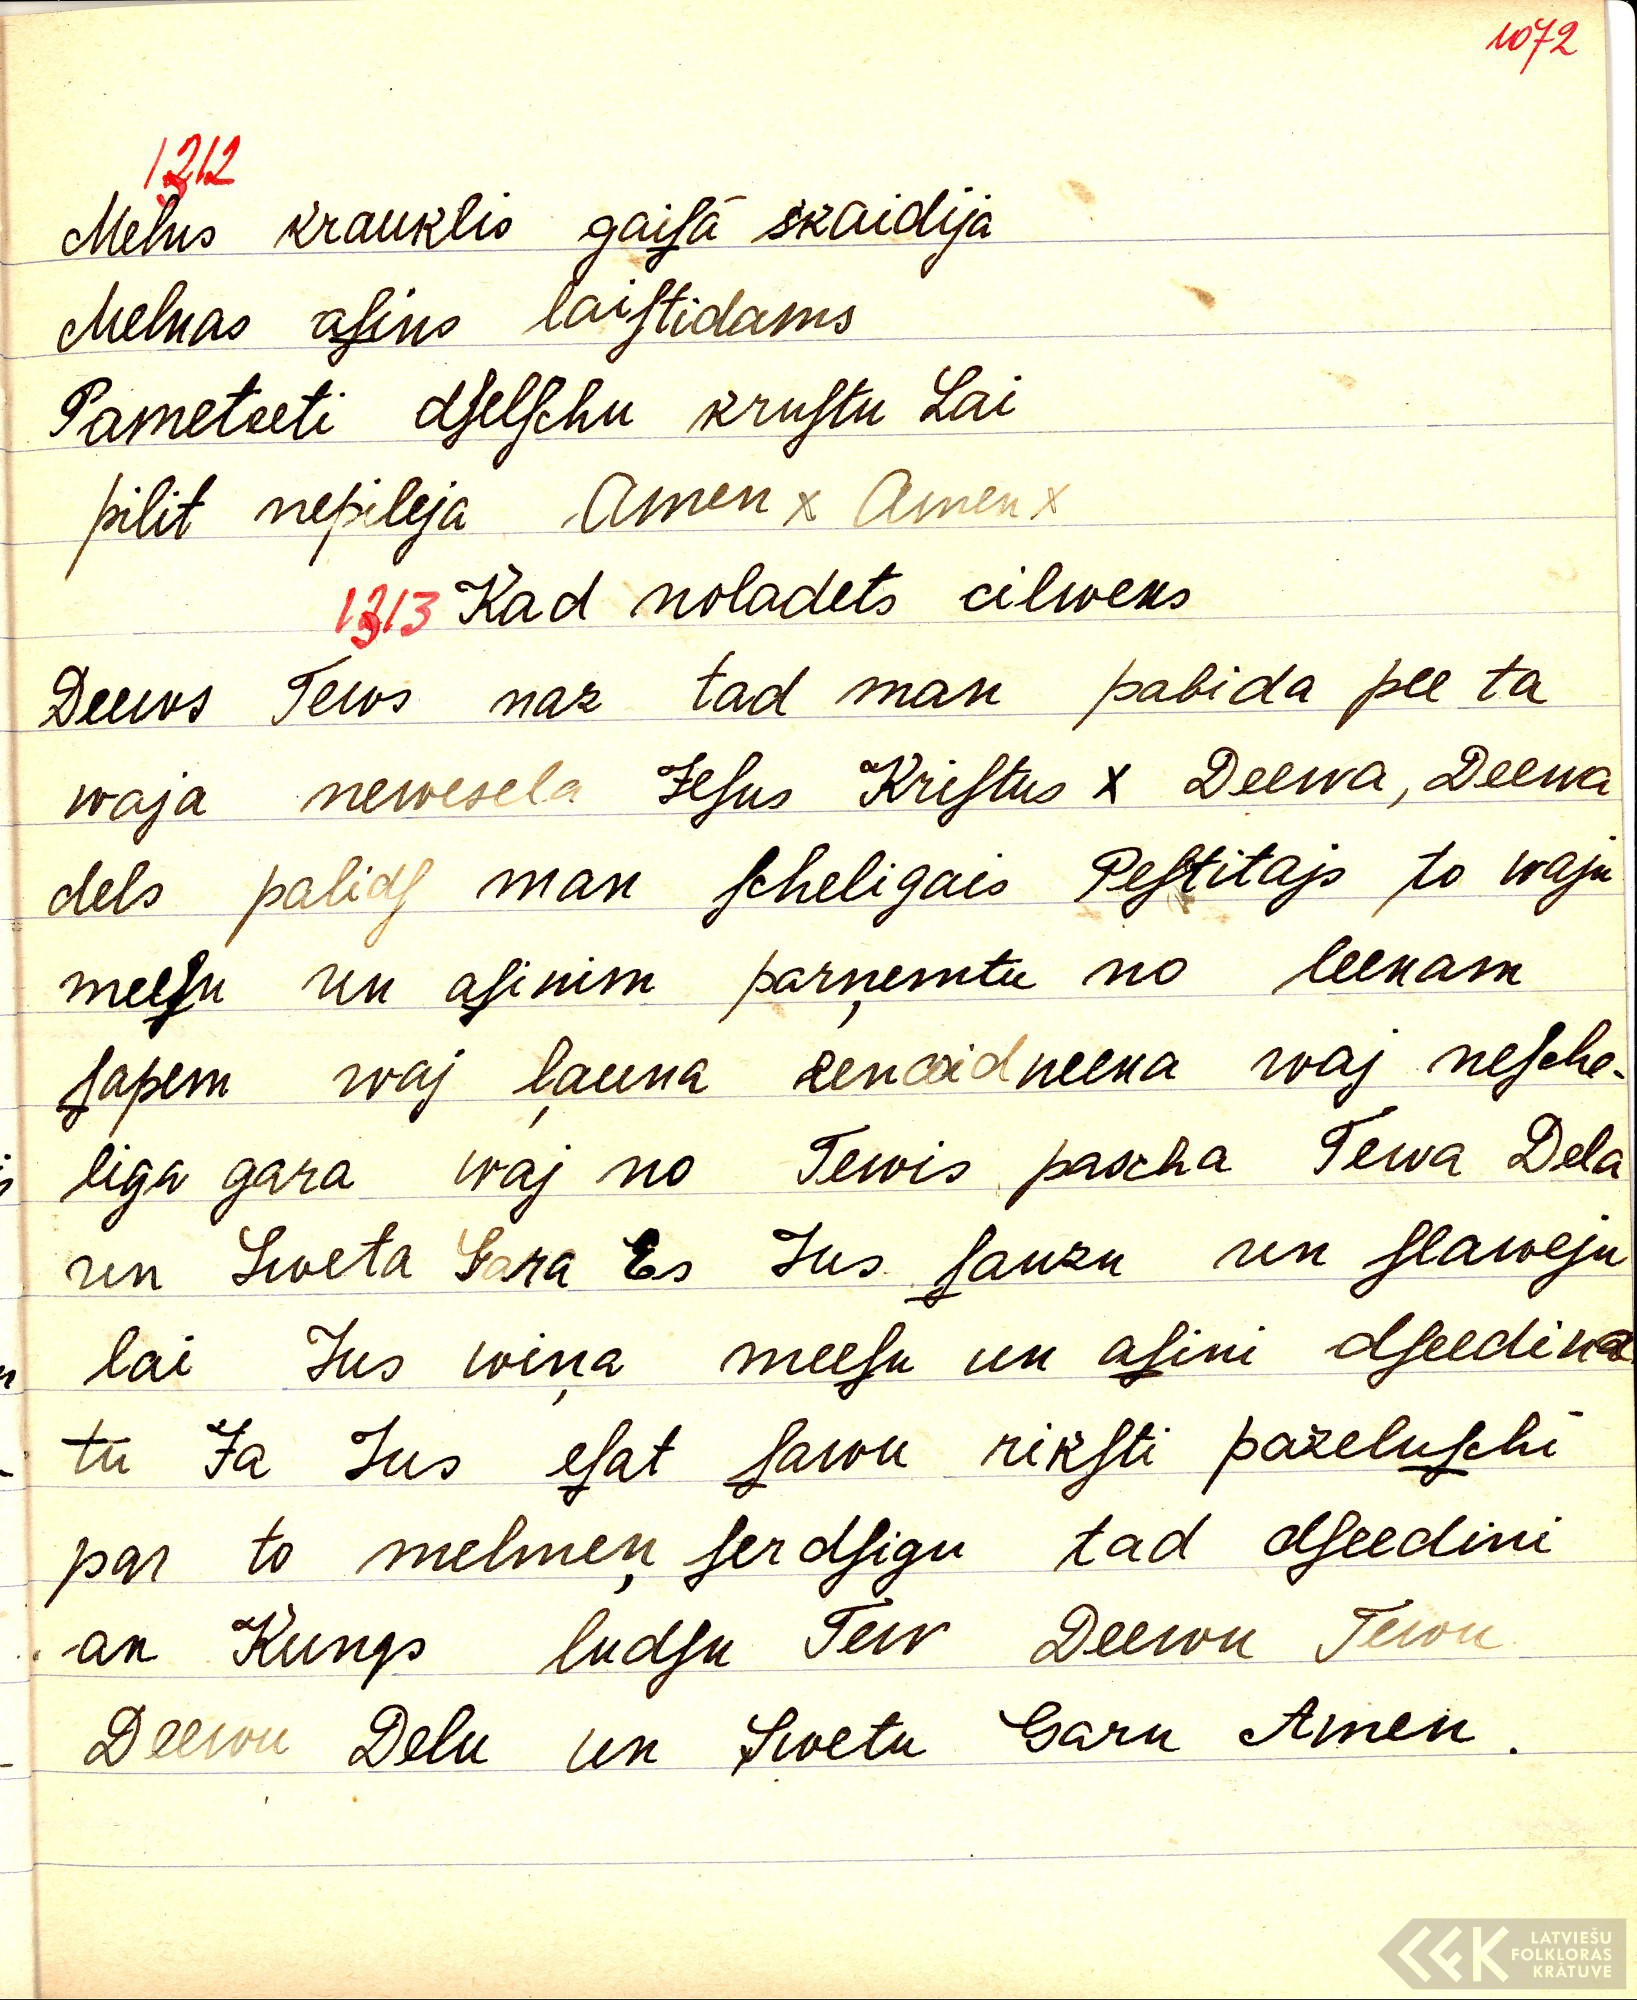 1072
1312
Melns krauklis gaiſā skaidija
Melnas aſins laiſtidams
Pametseti dſelſchu kruſtu Lai
pilit nepileja Amen x Amen x
1313 Kad noladets cilweks
Deews Tews naz tad man pabida pee ta
waja newesela Jeſus Kriſtus x Deewa, Deewa
dels palidſ man ſcheligais Peſtitajs to waju
meeſu un aſinim parņemtu no leekam
ſapem waj ļauna eenaidneeka waj neſche-
liga gara waj no Tewis pascha Tewa Dela
un Sweta Gara Es Jus ſauzu un ſlaweju
lai Jus wiņa meeſu un aſini dſeedina
tu Ja Jus eſat ſawu rikſti pazeluſchi
par to melmeņ ſerdſigu tad dſeedini
an Kungs ludſu Tew Deewu Tewu
Deewu Delu un Swetu Garu Amen.
LATVIEŠU
FOLKLORAS
KRĀTUVE